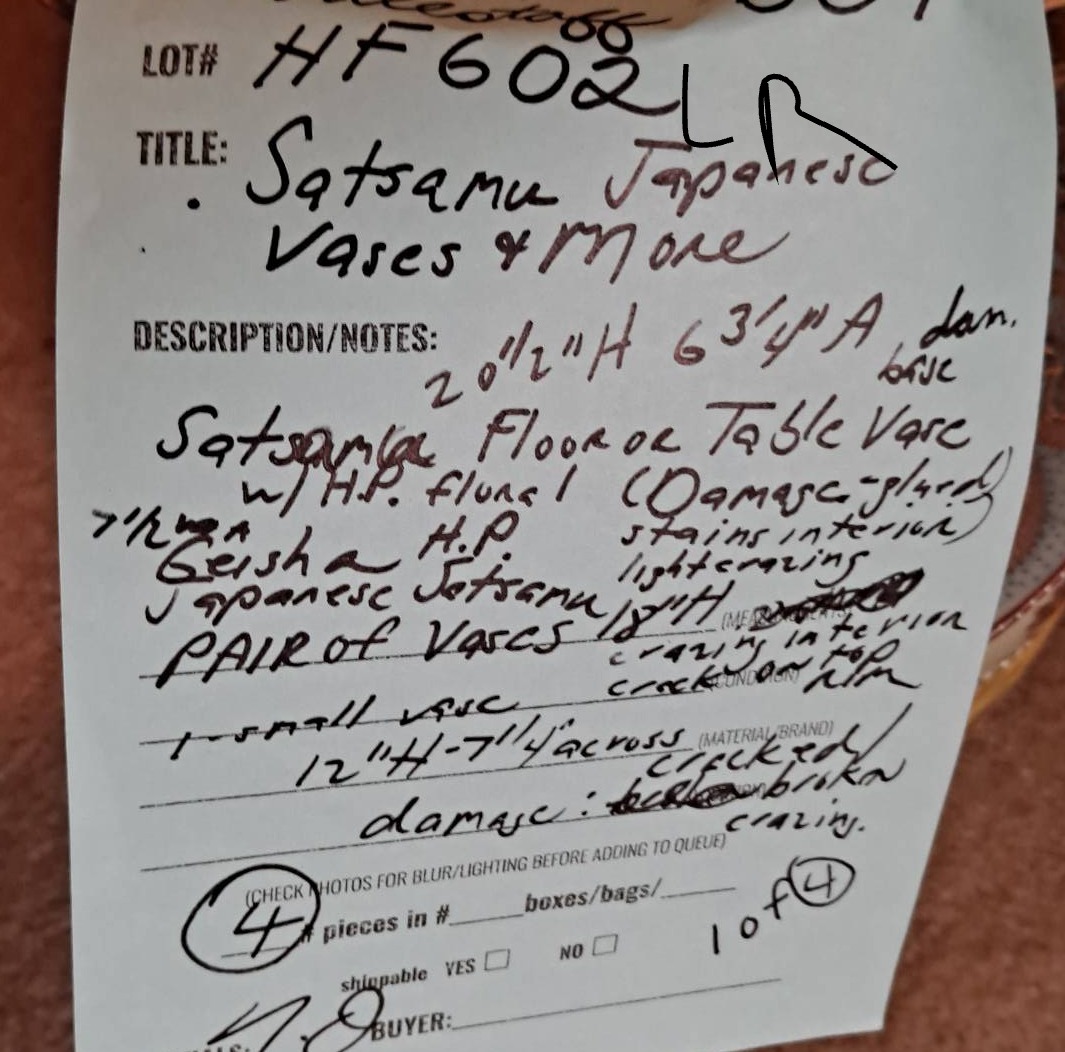 LOT# HF602 LR
TITLE: Satsamu Japanese
Vases & More
DESCRIPTION/NOTES: 20 1/2"H 6 3/4" A dam.
base
Satsama Floor or Table Vase
w/ H.P. floral (Damage-glued
stains interior)
Geisha H.P.
light crazing
Japanese Satsamu 18"H
PAIR of Vases
crazing interior
crack on top rim
1-small vase
12"H-7"1/4" across (MATERIAL/BRAND)
damage: cracked/
broken
crazing.
(CHECK PHOTOS FOR BLUR/LIGHTING BEFORE ADDING TO QUEUE)
4 # pieces in #____boxes/bags/____
1 of 4
shippable YES NO
BUYER: